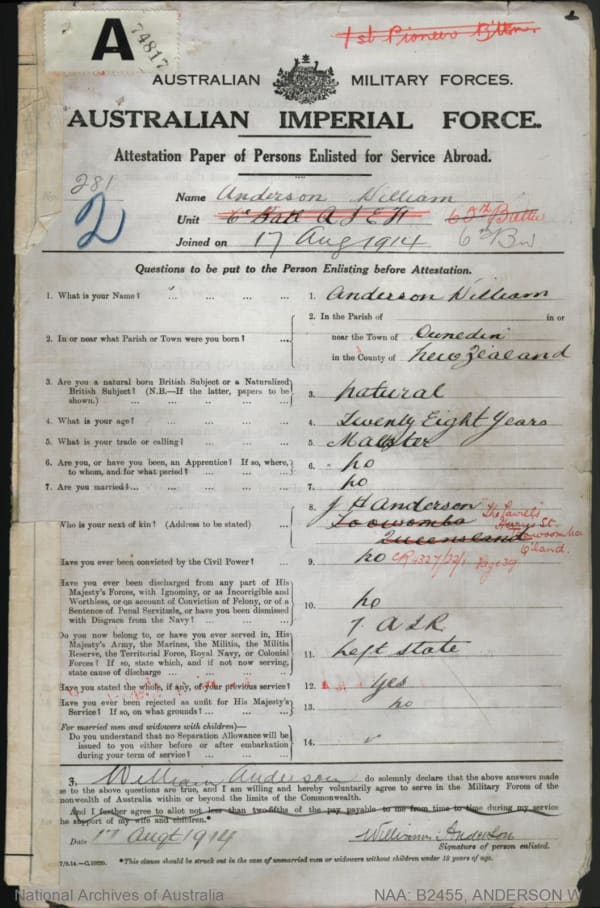 A 74817
1st Pioneer Battn
AUSTRALIAN MILITARY FORCES.
AUSTRALIAN IMPERIAL FORCE.
Attestation Paper of Persons Enlisted for Service Abroad.
No. 281
2
Name Anderson William
Unit 6th Batt A I E F
6th Bn
Joined on 17 Aug 1914
Questions to be put to the Person Enlisting before Attestation.
1. What is your Name? ... ... ... ... 1. Anderson William
2. In or near what Parish or Town were you born? ... 2. In the Parish of in or
near the Town of Dunedin
in the County of New Zealand
3. Are you a natural born British Subject or a Naturalized
British Subject? (N.B.—If the latter, papers to be
shown.) ... ... ... ... ... 3. natural
4. What is your age? ... ... ... ... 4. Twenty Eight Years
5. What is your trade or calling? ... ... ... 5. Maltster
6. Are you, or have you been, an Apprentice? If so, where,
to whom, and for what period? ... ... ... 6. no
7. Are you married? ... ... ... ... ... 7. no
Who is your next of kin? (Address to be stated) ... 8. J H Anderson
Toowomba
Queensland
"The Laurels"
St.
Toowoomba
Q'land.
Have you ever been convicted by the Civil Power? ... 9. no
Have you ever been discharged from any part of His
Majesty's Forces, with Ignominy, or as Incorrigible and
Worthless, or on account of Conviction of Felony, or of a
Sentence of Penal Servitude, or have you been dismissed
with Disgrace from the Navy? ... ... ... 10. no
Do you now belong to, or have you ever served in, His
Majesty's Army, the Marines, the Militia, the Militia
Reserve, the Territorial Force, Royal Navy, or Colonial
Forces? If so, state which, and if not now serving,
state cause of discharge ... ... ... ... 11. left state
Have you stated the whole, if any, of your previous service? 12. yes
Have you ever been rejected as unfit for His Majesty's
Service? If so, on what grounds? ... ... ... 13. no
For married men and widowers with children)—
Do you understand that no Separation Allowance will be
issued to you either before or after embarkation
during your term of service? ... ... ... 14.
3. William Anderson do solemnly declare that the above answers made
e to the above questions are true, and I am willing and hereby voluntarily agree to serve in the Military Forces of the
nonwealth of Australia within or beyond the limits of the Commonwealth.
And I further agree to allot not less than two-fifths of the pay payable to me from time to time during my service
he support of my wife and children.*
Date 17 Augt 1914 William Anderson
Signature of person enlisted.
7/9.14.—C.10920. *This clause should be struck out in the case of unmarried men or widowers without children under 18 years of age.
National Archives of Australia NAA: B2455, ANDERSON W